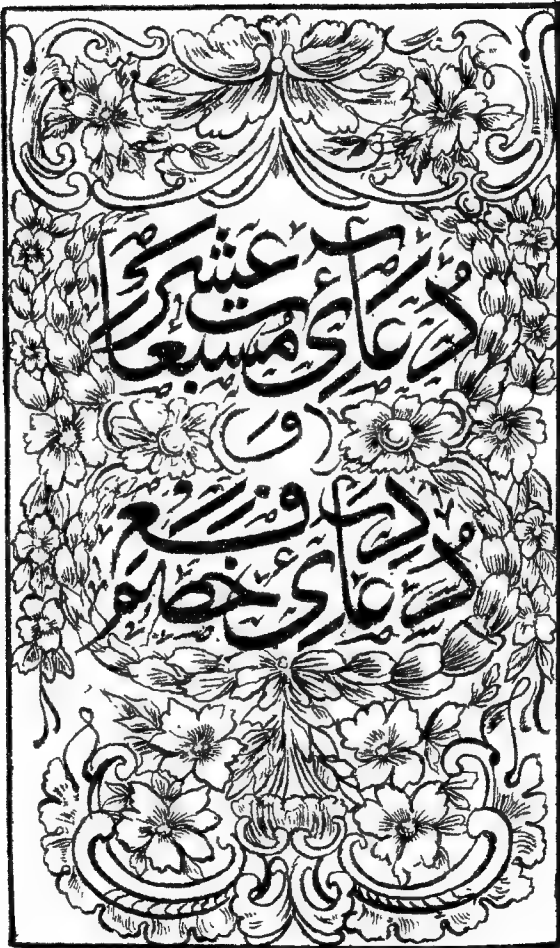 دُعائ مُسبعات عشر
و
دُعائ در رفع خصوم